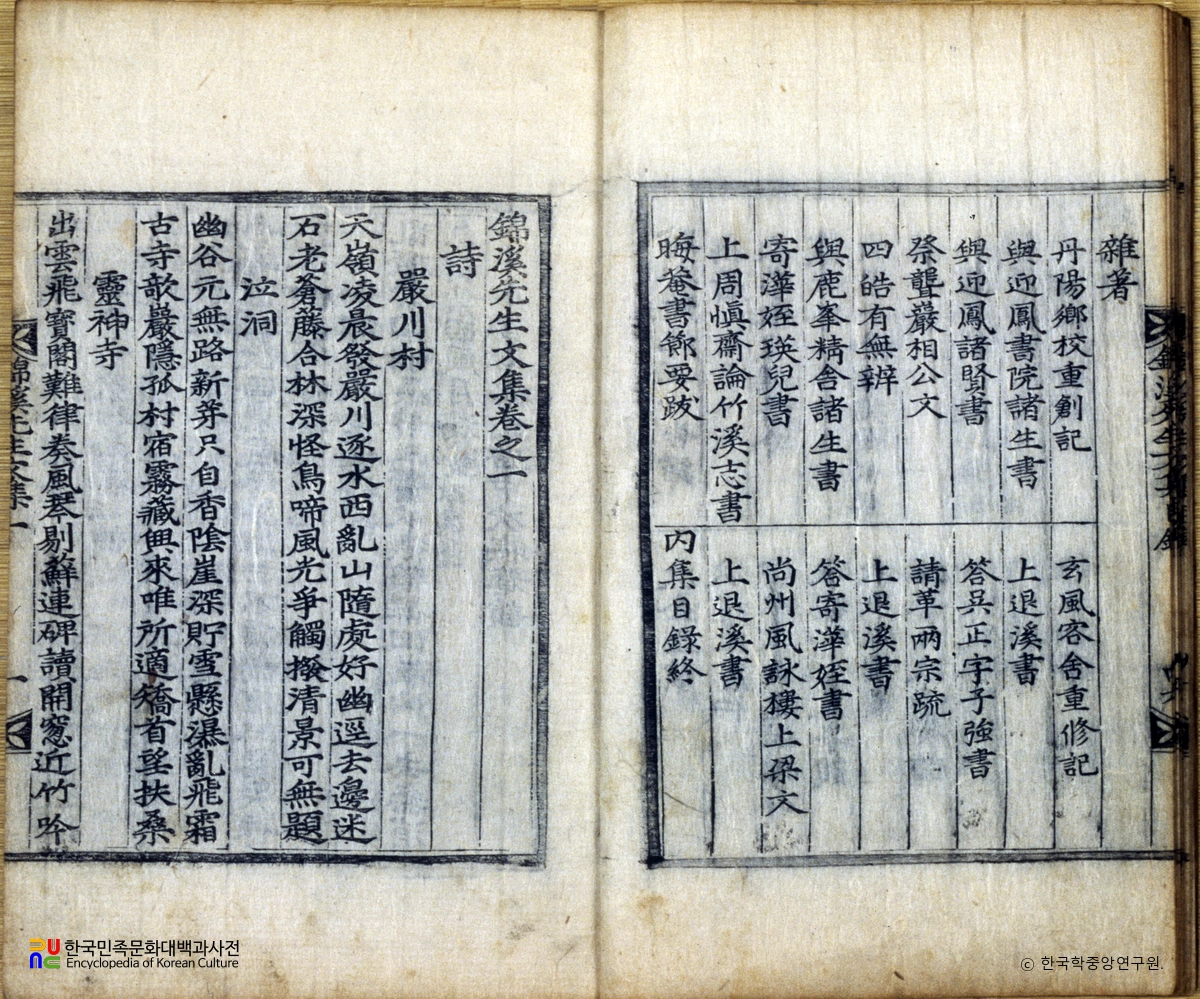 雜著
丹陽鄉校重創記　玄風客舍重修記
與迎鳳書院諸生書　上退溪書
與迎鳳諸賢書　答吳正字子強書
祭聾巖相公文　請革兩宗疏
四皓有無辨　上退溪書
與鹿峯精舍諸生書　答寄澕姪書
寄澕姪瑛兒書　尙州風詠樓上梁文
上周愼齋論竹溪志書　上退溪書
晦菴書節要跋　內集目錄終
錦溪先生文集卷之一
詩
嚴川村
天嶺凌晨發嚴川逐水西亂山隨處好幽逕去邊迷
石老蒼藤合林深怪鳥啼風光爭觸撥清景可無題
泣洞
幽谷元無路新芽只自香陰崖深貯雪懸瀑亂飛霜
古寺欹巖隱孤村宿霧藏興來唯所適矯首望扶桑
靈神寺
出雲飛寶閣難律奏風琴剔蘚連碑讀開窓近竹吟
錦溪先生文集一
一
한국민족문화대백과사전
Encyclopedia of Korean Culture
ⓒ 한국학중앙연구원.